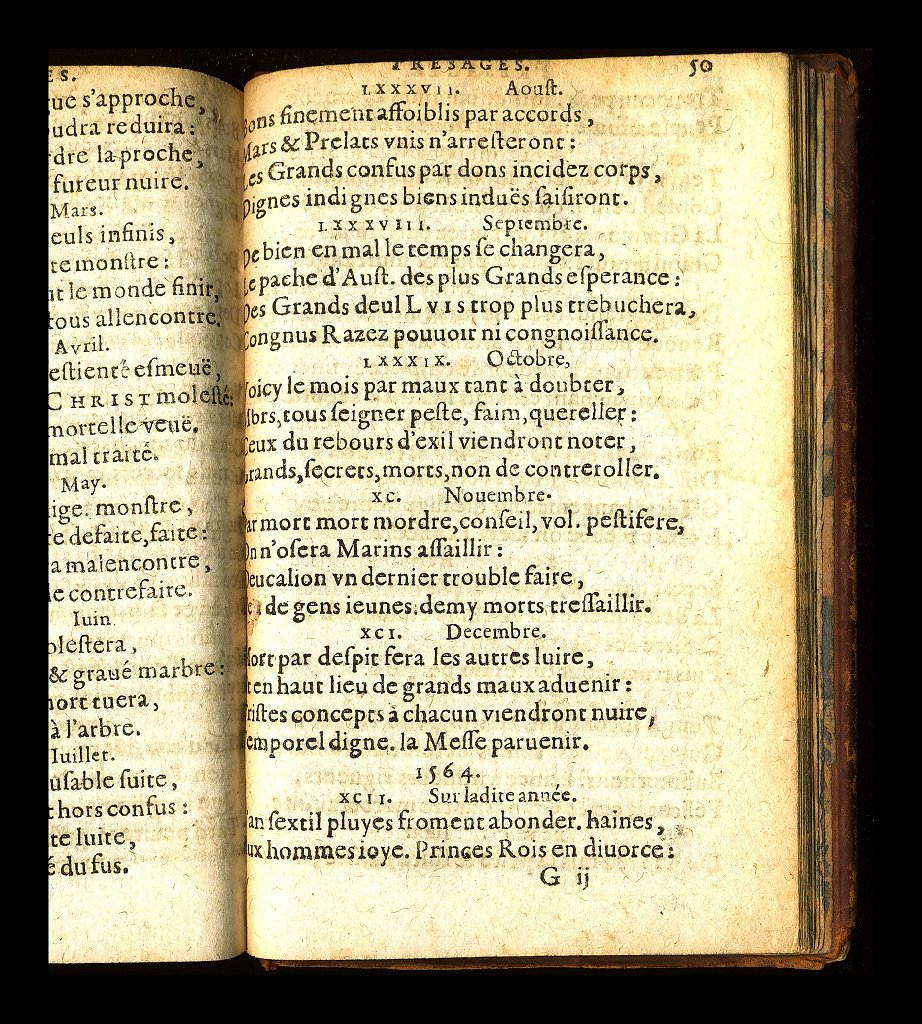 ES.
ue s'approche,
udra reduira:
dre la proche,
fureur nuire.
Mars.
euls infinis,
te monſtre:
le monde finir,
tous allencontre.
Avril.
eſtienté eſmeuë,
CHRIST moleſté:
mortelle veuë.
mal traité.
May.
ige. monſtre,
e defaite, faite:
a malencontre,
e contrefaire.
Iuin
oleſtera,
& graué marbre:
mort tuera,
à l'arbre.
Iuillet.
uſable ſuite,
hors confus:
te luite,
é du fus.
PRESAGES. 50
LXXXVII. Aouſt.
Bons finement affoiblis par accords,
Mars & Prelats vnis n'arreſteront:
Les Grands confus par dons incidez corps,
Dignes indignes biens induës ſaiſiront.
LXXXVIII. Septembre.
De bien en mal le temps ſe changera,
Le pache d'Auſt. des plus Grands eſperance:
Des Grands deul LVIS trop plus trebuchera,
Congnus Razez pouuoir ni congnoiſſance.
LXXXIX. Octobre,
Voicy le mois par maux tant à doubter,
Mors, tous ſeigner peſte, faim, quereller:
Ceux du rebours d'exil viendront noter,
Grands, ſecrets, morts, non de contreroller.
XC. Nouembre.
Par mort mort mordre, conſeil, vol. peſtifere,
On n'oſera Marins aſſaillir:
Deucalion vn dernier trouble faire,
de gens ieunes: demy morts treſſaillir.
XCI. Decembre.
Mort par deſpit fera les autres luire,
Et en haut lieu de grands maux aduenir:
Triſtes concepts à chacun viendront nuire,
Temporel digne. la Meſſe paruenir.
1564.
XCII. Sur ladite année.
L'an ſextil pluyes froment abonder. haines,
Aux hommes ioye. Princes Rois en diuorce:
G ij